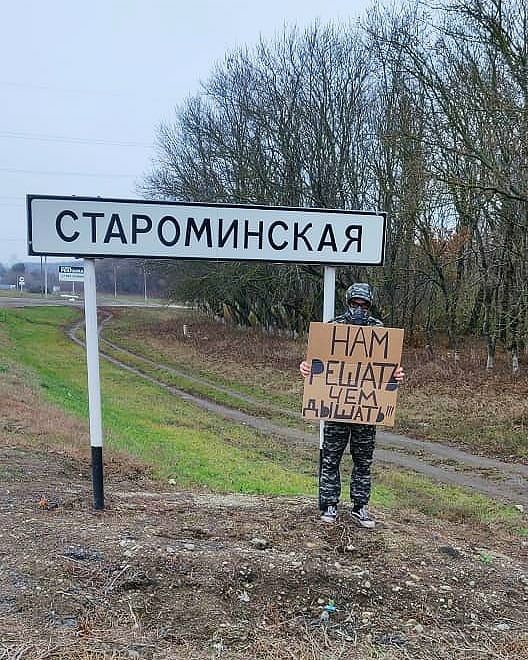 СТАРОМИНСКАЯ
НАМ
РЕШАТЬ
ЧЕМ
ДЫШАТЬ!!!